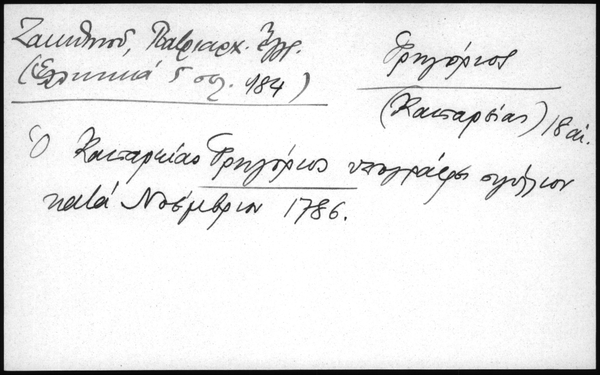 Ζακυθηνοῦ, Πατριαρχ. Ἔγγ.
(Ἑλληνικά 5 σελ. 184)
Γρηγόριος
(Καισαρείας) 18 αἰ.
Ὁ Καισαρείας Γρηγόριος ὑπογράφει σιγίλλιον
κατά Νοέμβριον 1786.